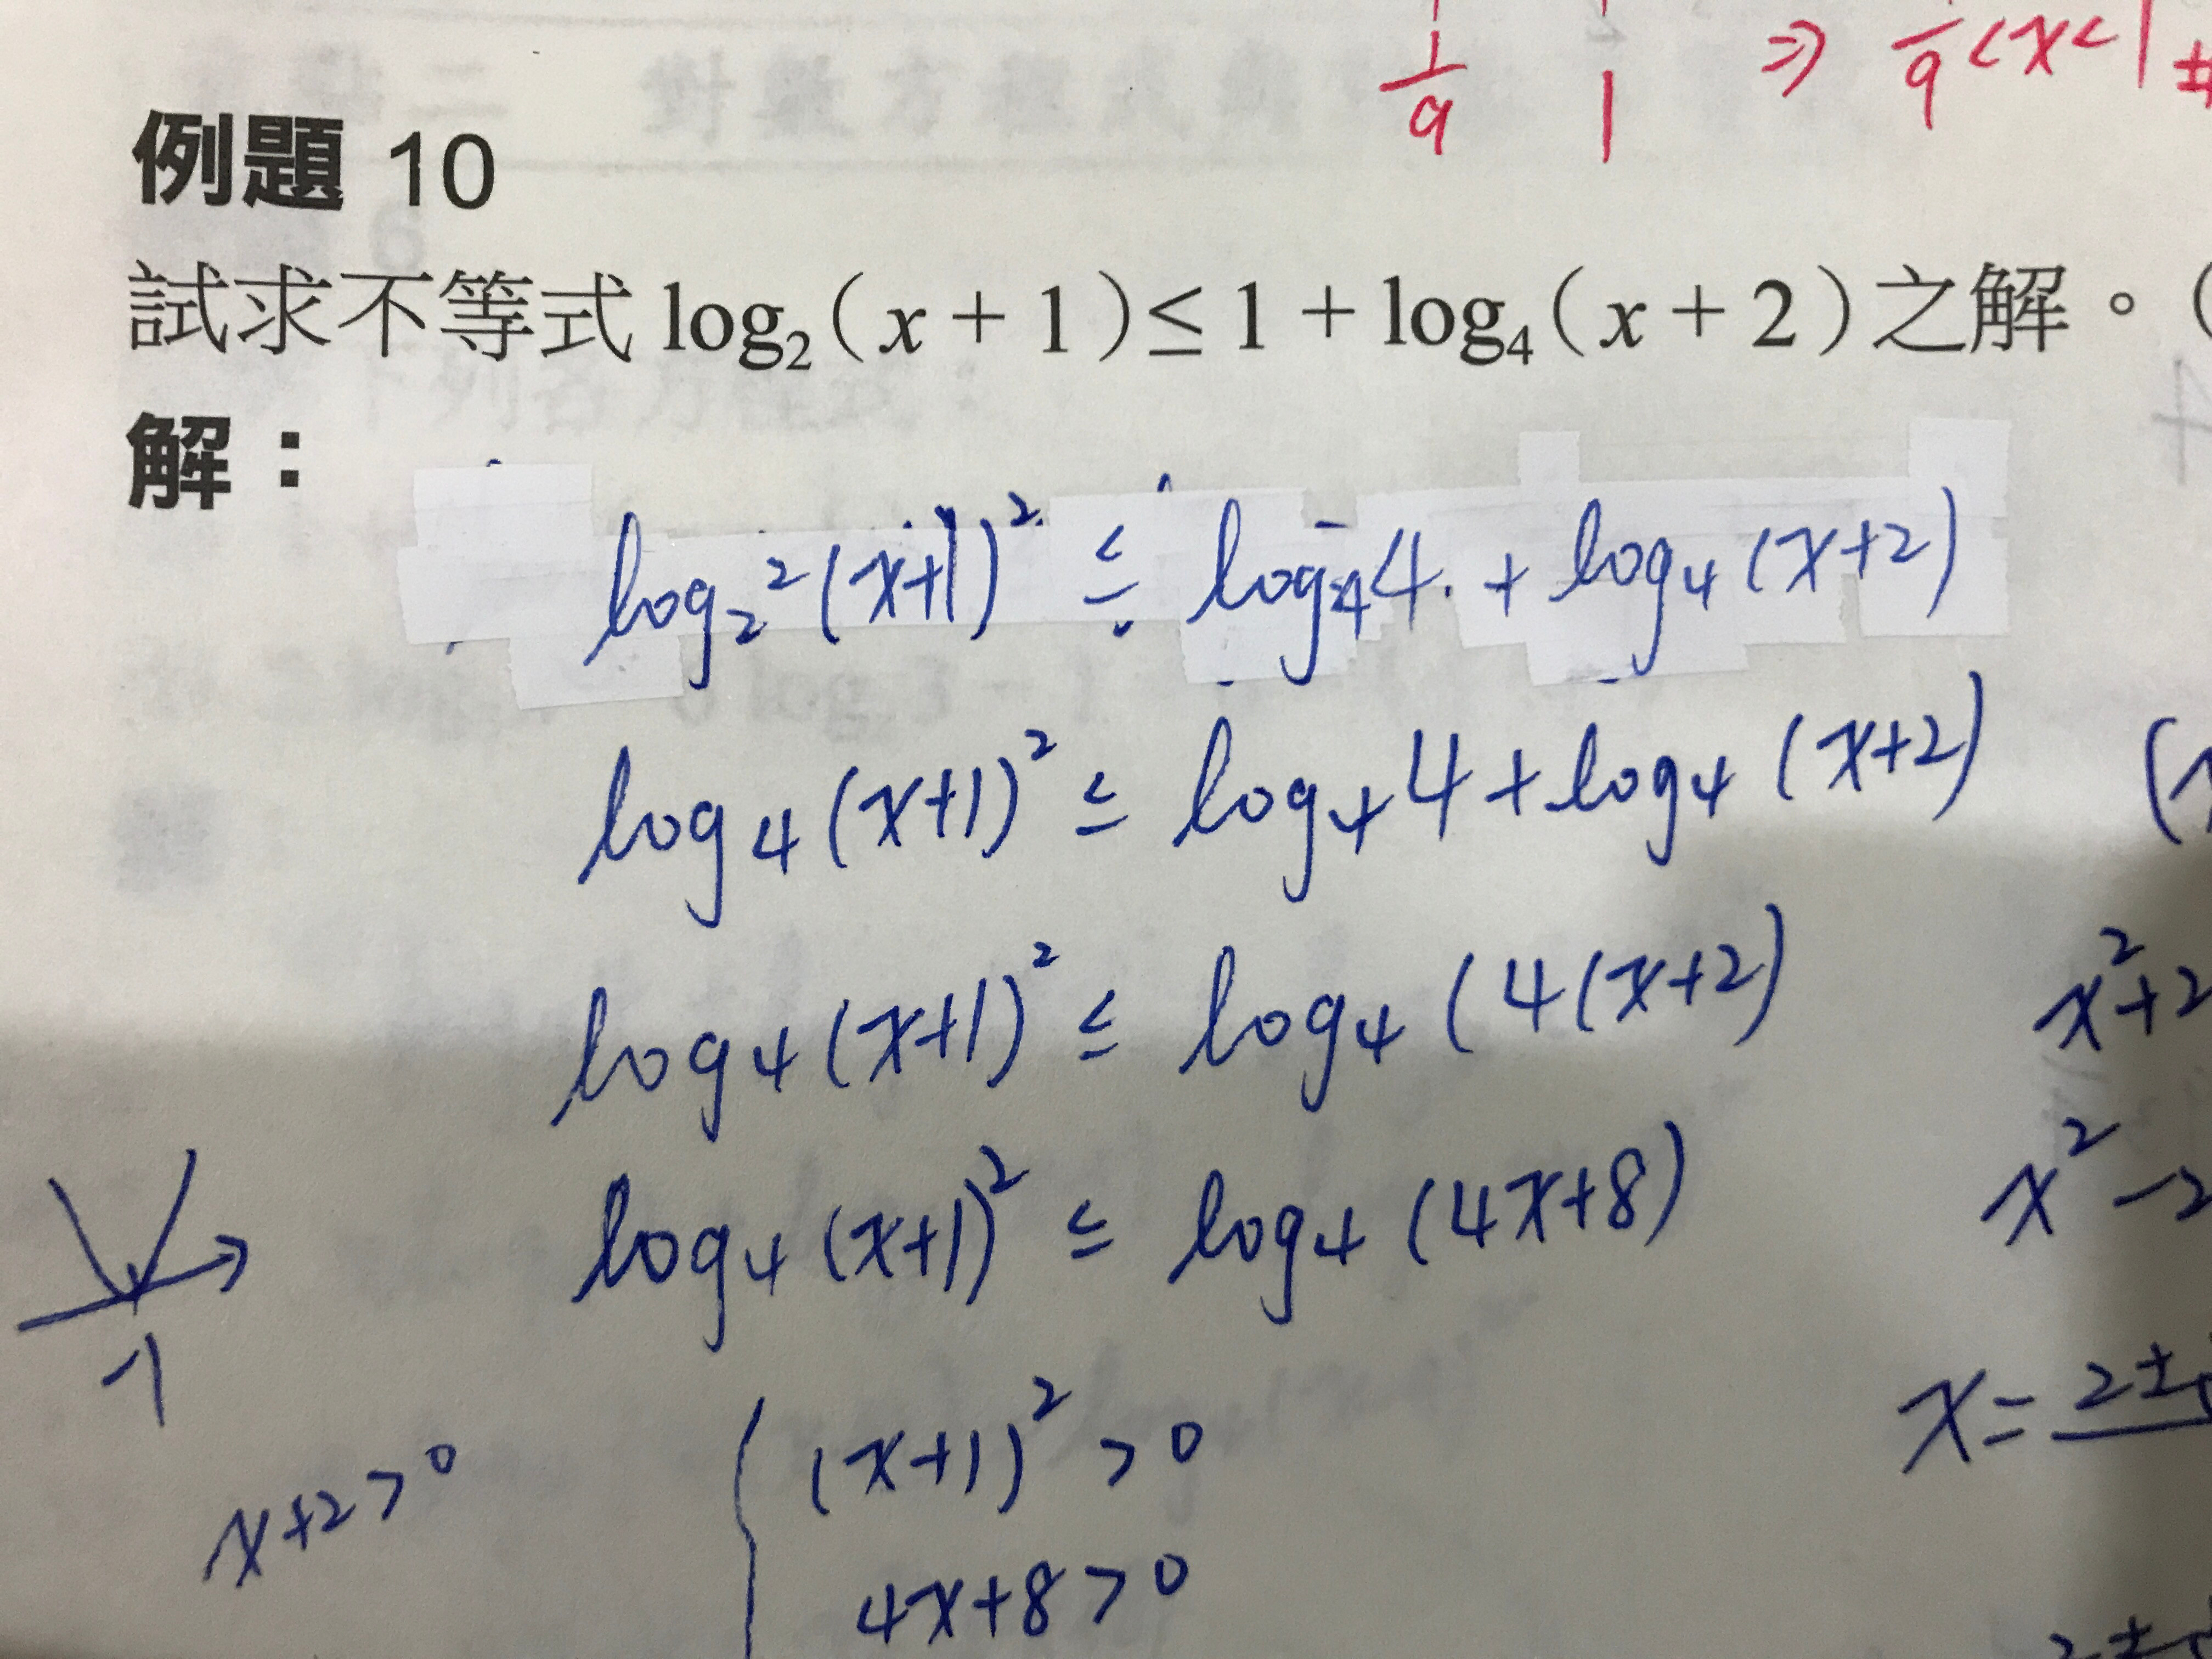 1/9 1 ⇒ 1/9 < x < 1
例題 10
試求不等式 log₂(x + 1) ≤ 1 + log₄(x + 2)之解。(
解：
log₂²(x+1)² ≤ log₄4 + log₄(x+2)
log₄(x+1)² ≤ log₄4 + log₄(x+2)
log₄(x+1)² ≤ log₄(4(x+2)
x²+2
log₄(x+1)² ≤ log₄(4x+8)
x²-2
-1
x= 2±
(x+1)² > 0
x+2 > 0
4x+8 > 0
2±